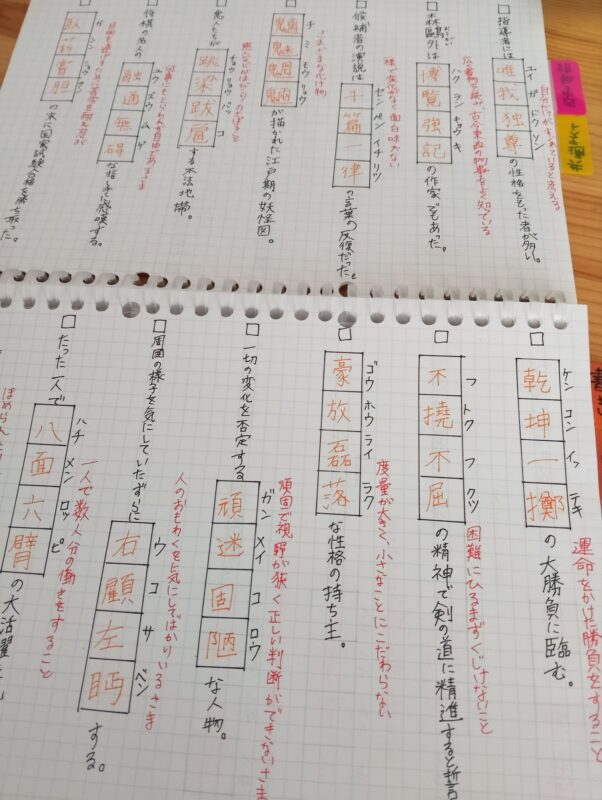 指導者には唯我独尊の性格をもった者が多い。
ユイ ガ ドク ソン
自分だけがすぐれていると考える
森鷗外は博覧強記の作家でもあった。
おうがい
ハク ラン キョウ キ
広く書物を読み、古今東西の物事をよく知っている
候補者の演説は千篇一律の言葉の反復だった。
セン ペン イチ リツ
様で変化がなく、面白味がない
魑魅魍魎が描かれた江戸期の妖怪図。
チ ミ モウ リョウ
さまざまな化け物
悪人たちが跳梁跋扈する不法地帯。
チョウ リョウ バッ コ
将棋の名人の融通無碍な指し手に感嘆する。
ユウ ズウ ム ゲ
臥薪嘗胆の末に国家試験合格を勝ち取った。
ガ シン ショウ タン
乾坤一擲の大勝負に臨む。
ケン コン イッ テキ
運命をかけた勝負をすること
不撓不屈の精神で剣の道に精進すると誓
フ トク フ クツ
困難にひるまずくじけないこと
豪放磊落な性格の持ち主。
ゴウ ホウ ライ ラク
度量が大きく、小さなことにこだわらない
一切の変化を否定する頑迷固陋な人物。
ガン メイ コ ロウ
頑固で視野が狭く正しい判断ができないさま
周囲の様子を気にしていたずらに右顧左眄する。
ウ コ サ ベン
人のおもわくを気にしてばかりいるさま
たった一人で八面六臂の大活躍
ハチ メン ロッ ピ
一人で数人分の働きをすること